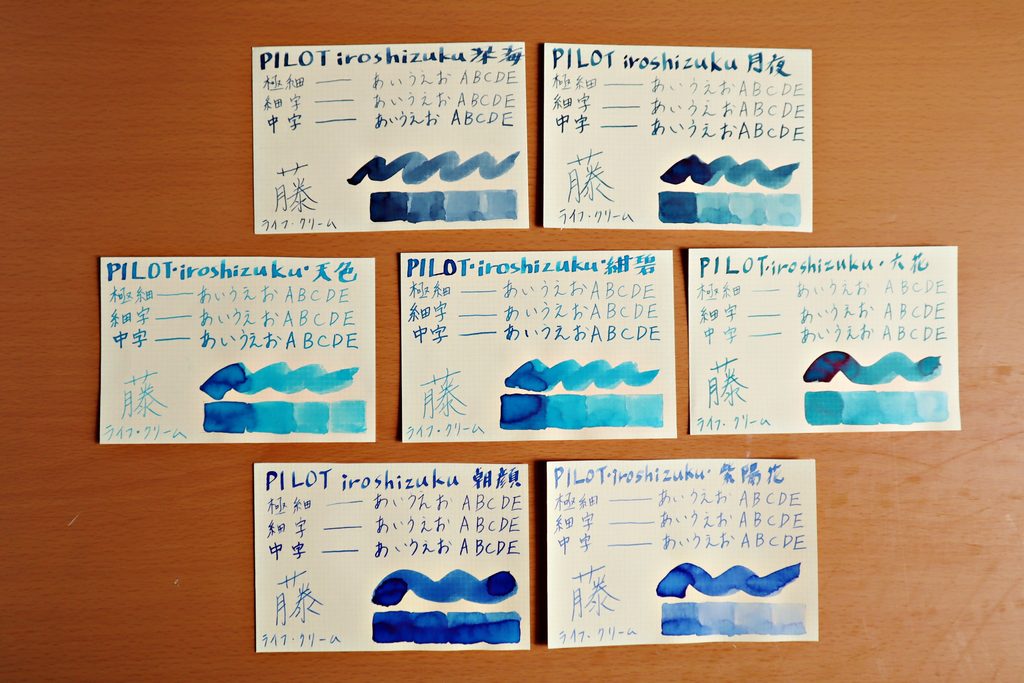 PILOT iroshizuku 深海
極細 あいうえお ABCDE
細字 あいうえお ABCDE
中字 あいうえお ABCDE
藤
ライフ・クリーム
PILOT iroshizuku 月夜
極細 あいうえお ABCDE
細字 あいうえお ABCDE
中字 あいうえお ABCDE
藤
ライフ・クリーム
PILOT・iroshizuku・天色
極細 あいうえお ABCDE
細字 あいうえお ABCDE
中字 あいうえお ABCDE
藤
ライフ・クリーム
PILOT・iroshizuku・紺碧
極細 あいうえお ABCDE
細字 あいうえお ABCDE
中字 あいうえお ABCDE
藤
ライフ・クリーム
PILOT・iroshizuku・六花
極細 あいうえお ABCDE
細字 あいうえお ABCDE
中字 あいうえお ABCDE
藤
ライフ・クリーム
PILOT iroshizuku 朝顔
極細 あいうえお ABCDE
細字 あいうえお ABCDE
中字 あいうえお ABCDE
藤
ライフ・クリーム
PILOT・iroshizuku・紫陽花
極細 あいうえお ABCDE
細字 あいうえお ABCDE
中字 あいうえお ABCDE
藤
ライフ・クリーム